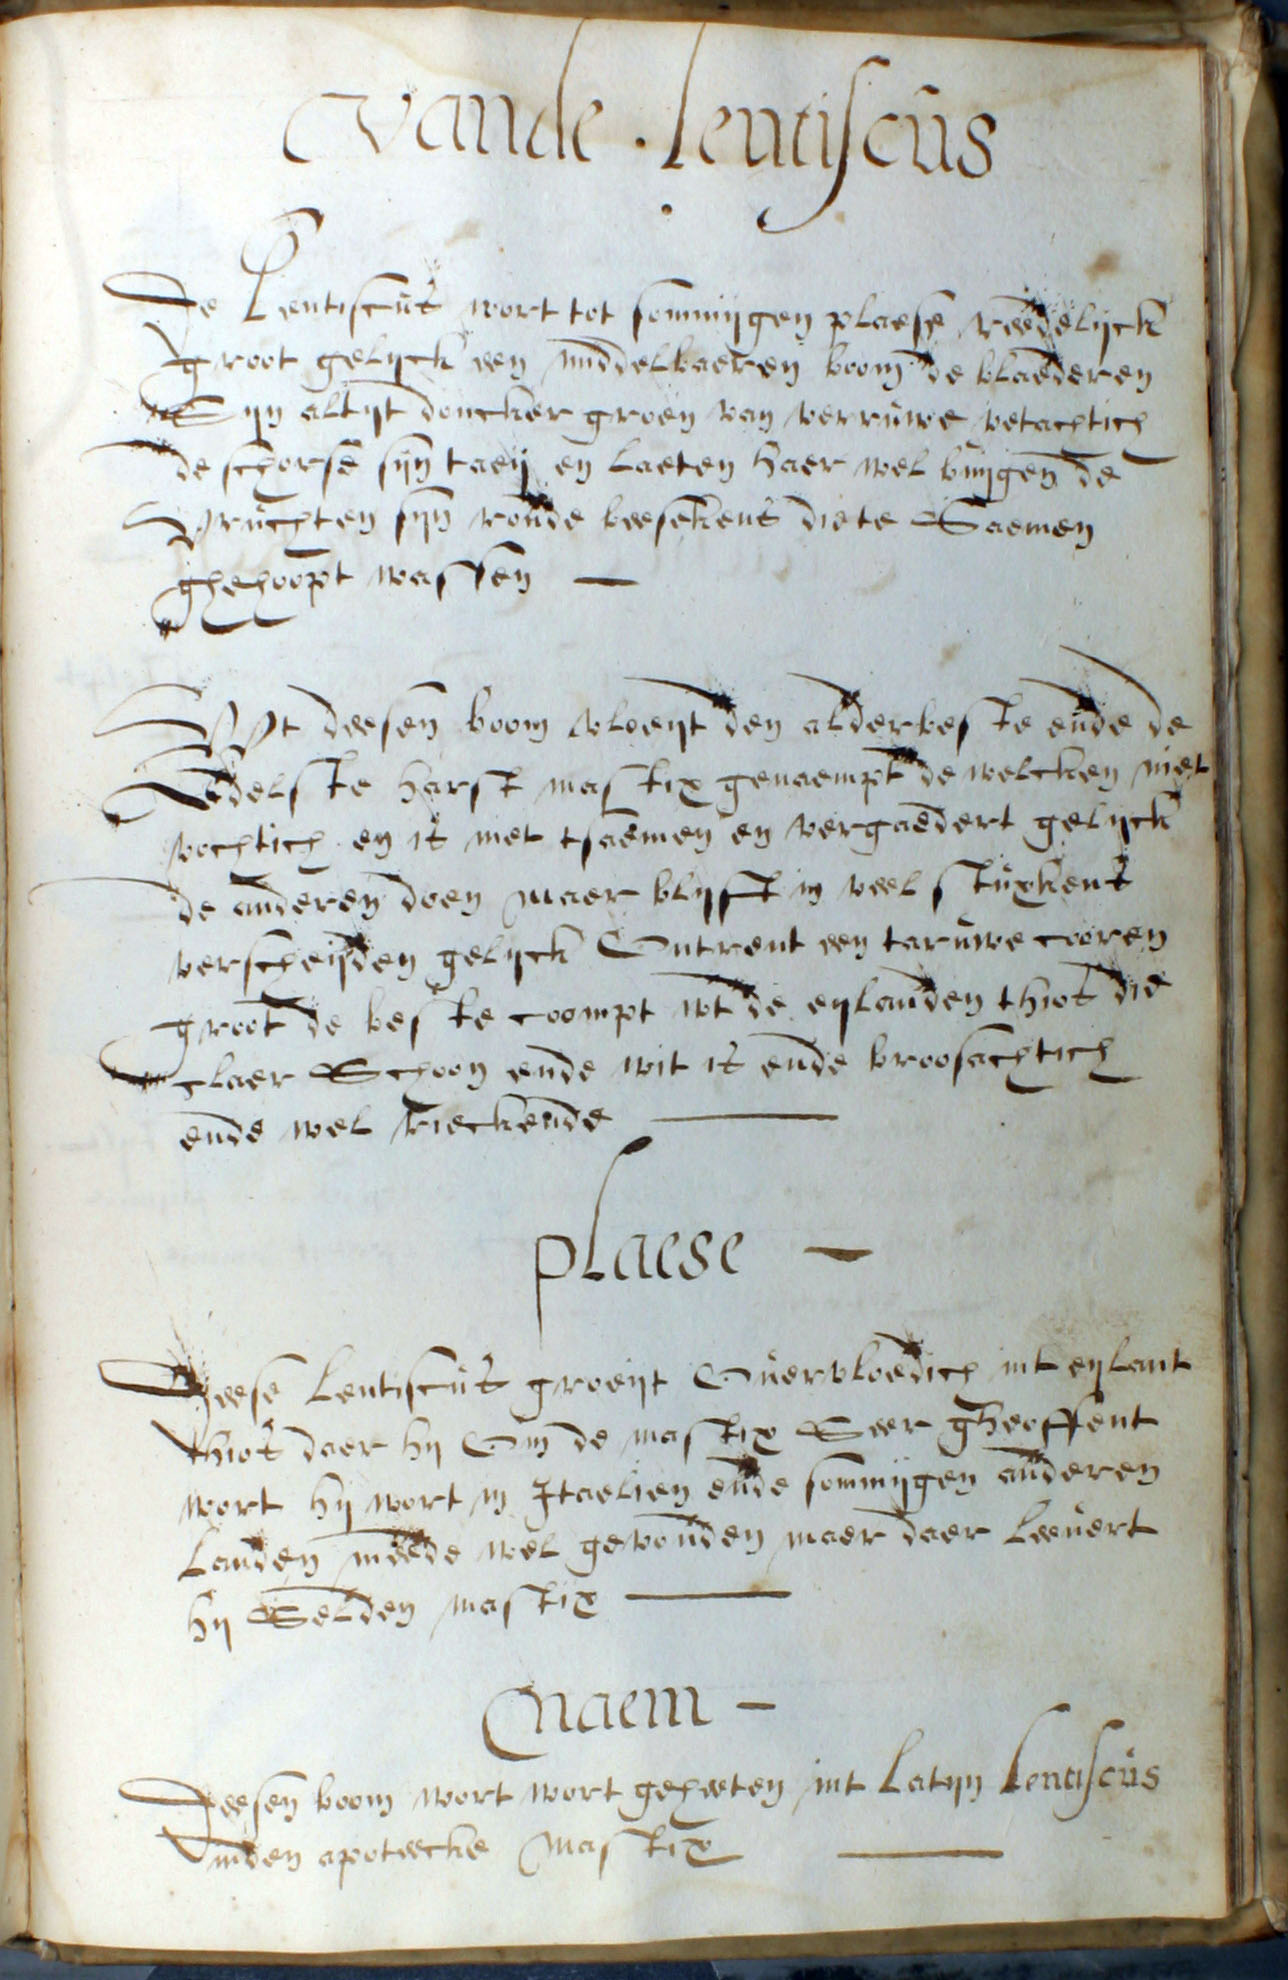 vande . lentiscus
De Lentiscus wort tot sommijgen plaese reedelijck
groot gelijck een middelbaeren boom de blaederen
Sijn altijt doncker groen van verruwe vetachtich
de schorse sijn taeij en laeten haer wel buijgen de
Vruchten sijn ronde beesekens die te Saemen
ghehoopt wassen
Wt deesen boom vloeijt den alderbeste ende de
Eedelste harst mastix genaempt de welcken niet
vochtich en is niet tsaemen en vergaedert gelijck
de anderen doen maer blijft in veel stuxkens
verscheijden gelijck Ontrent een taruwe cooren
groot de beste coompt wt de eijlanden thios die
claer Schoon ende wit is ende broosachtich
ende wel rieckende
plaese
Deese Lentiscus groeijt Overvloedich int eijlant
thios daer hij Om de mastix Seer gheoffent
wort hij wort in Itaelien ende sommijgen anderen
Landen meede wel gevonden maer daer Leevert
hij Selden mastix
Naem
Deesen boom wort wort geheeten int Latijn Lentiscus
inden apoteecke Mastix